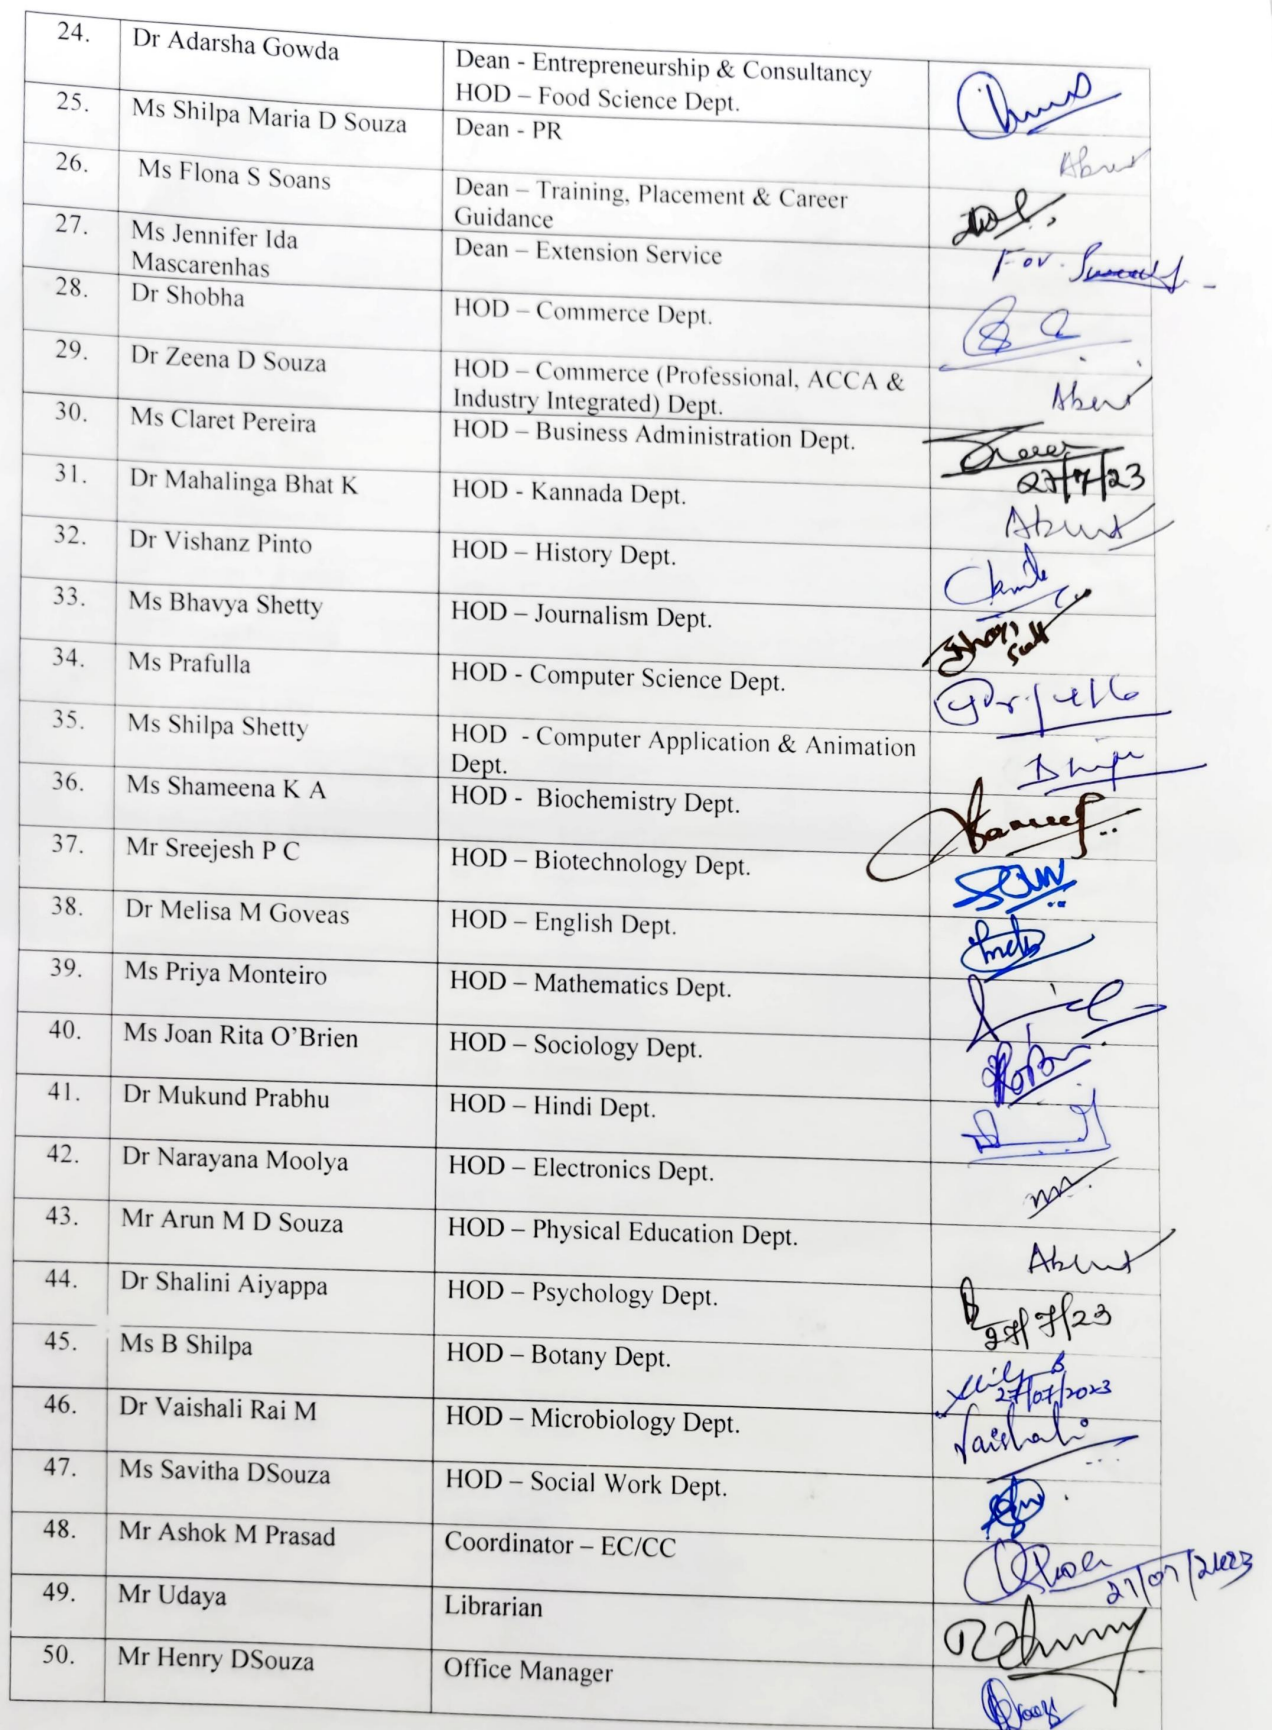 24. Dr Adarsha Gowda Dean - Entrepreneurship & Consultancy
HOD – Food Science Dept.
25. Ms Shilpa Maria D Souza Dean - PR Absent
26. Ms Flona S Soans Dean – Training, Placement & Career
Guidance
27. Ms Jennifer Ida Dean – Extension Service For
Mascarenhas
28. Dr Shobha HOD – Commerce Dept.
29. Dr Zeena D Souza HOD – Commerce (Professional, ACCA &
Industry Integrated) Dept. Absent
30. Ms Claret Pereira HOD – Business Administration Dept.
27/7/23
31. Dr Mahalinga Bhat K HOD - Kannada Dept. Absent
32. Dr Vishanz Pinto HOD – History Dept.
33. Ms Bhavya Shetty HOD – Journalism Dept.
34. Ms Prafulla HOD - Computer Science Dept.
35. Ms Shilpa Shetty HOD - Computer Application & Animation
Dept.
36. Ms Shameena K A HOD - Biochemistry Dept.
37. Mr Sreejesh P C HOD – Biotechnology Dept.
38. Dr Melisa M Goveas HOD – English Dept.
39. Ms Priya Monteiro HOD – Mathematics Dept.
40. Ms Joan Rita O’Brien HOD – Sociology Dept.
41. Dr Mukund Prabhu HOD – Hindi Dept.
42. Dr Narayana Moolya HOD – Electronics Dept.
43. Mr Arun M D Souza HOD – Physical Education Dept. Absent
44. Dr Shalini Aiyappa HOD – Psychology Dept.
27/7/23
45. Ms B Shilpa HOD – Botany Dept.
27/07/2023
46. Dr Vaishali Rai M HOD – Microbiology Dept. Vaishali
47. Ms Savitha DSouza HOD – Social Work Dept.
48. Mr Ashok M Prasad Coordinator – EC/CC
27/07/2023
49. Mr Udaya Librarian
50. Mr Henry DSouza Office Manager